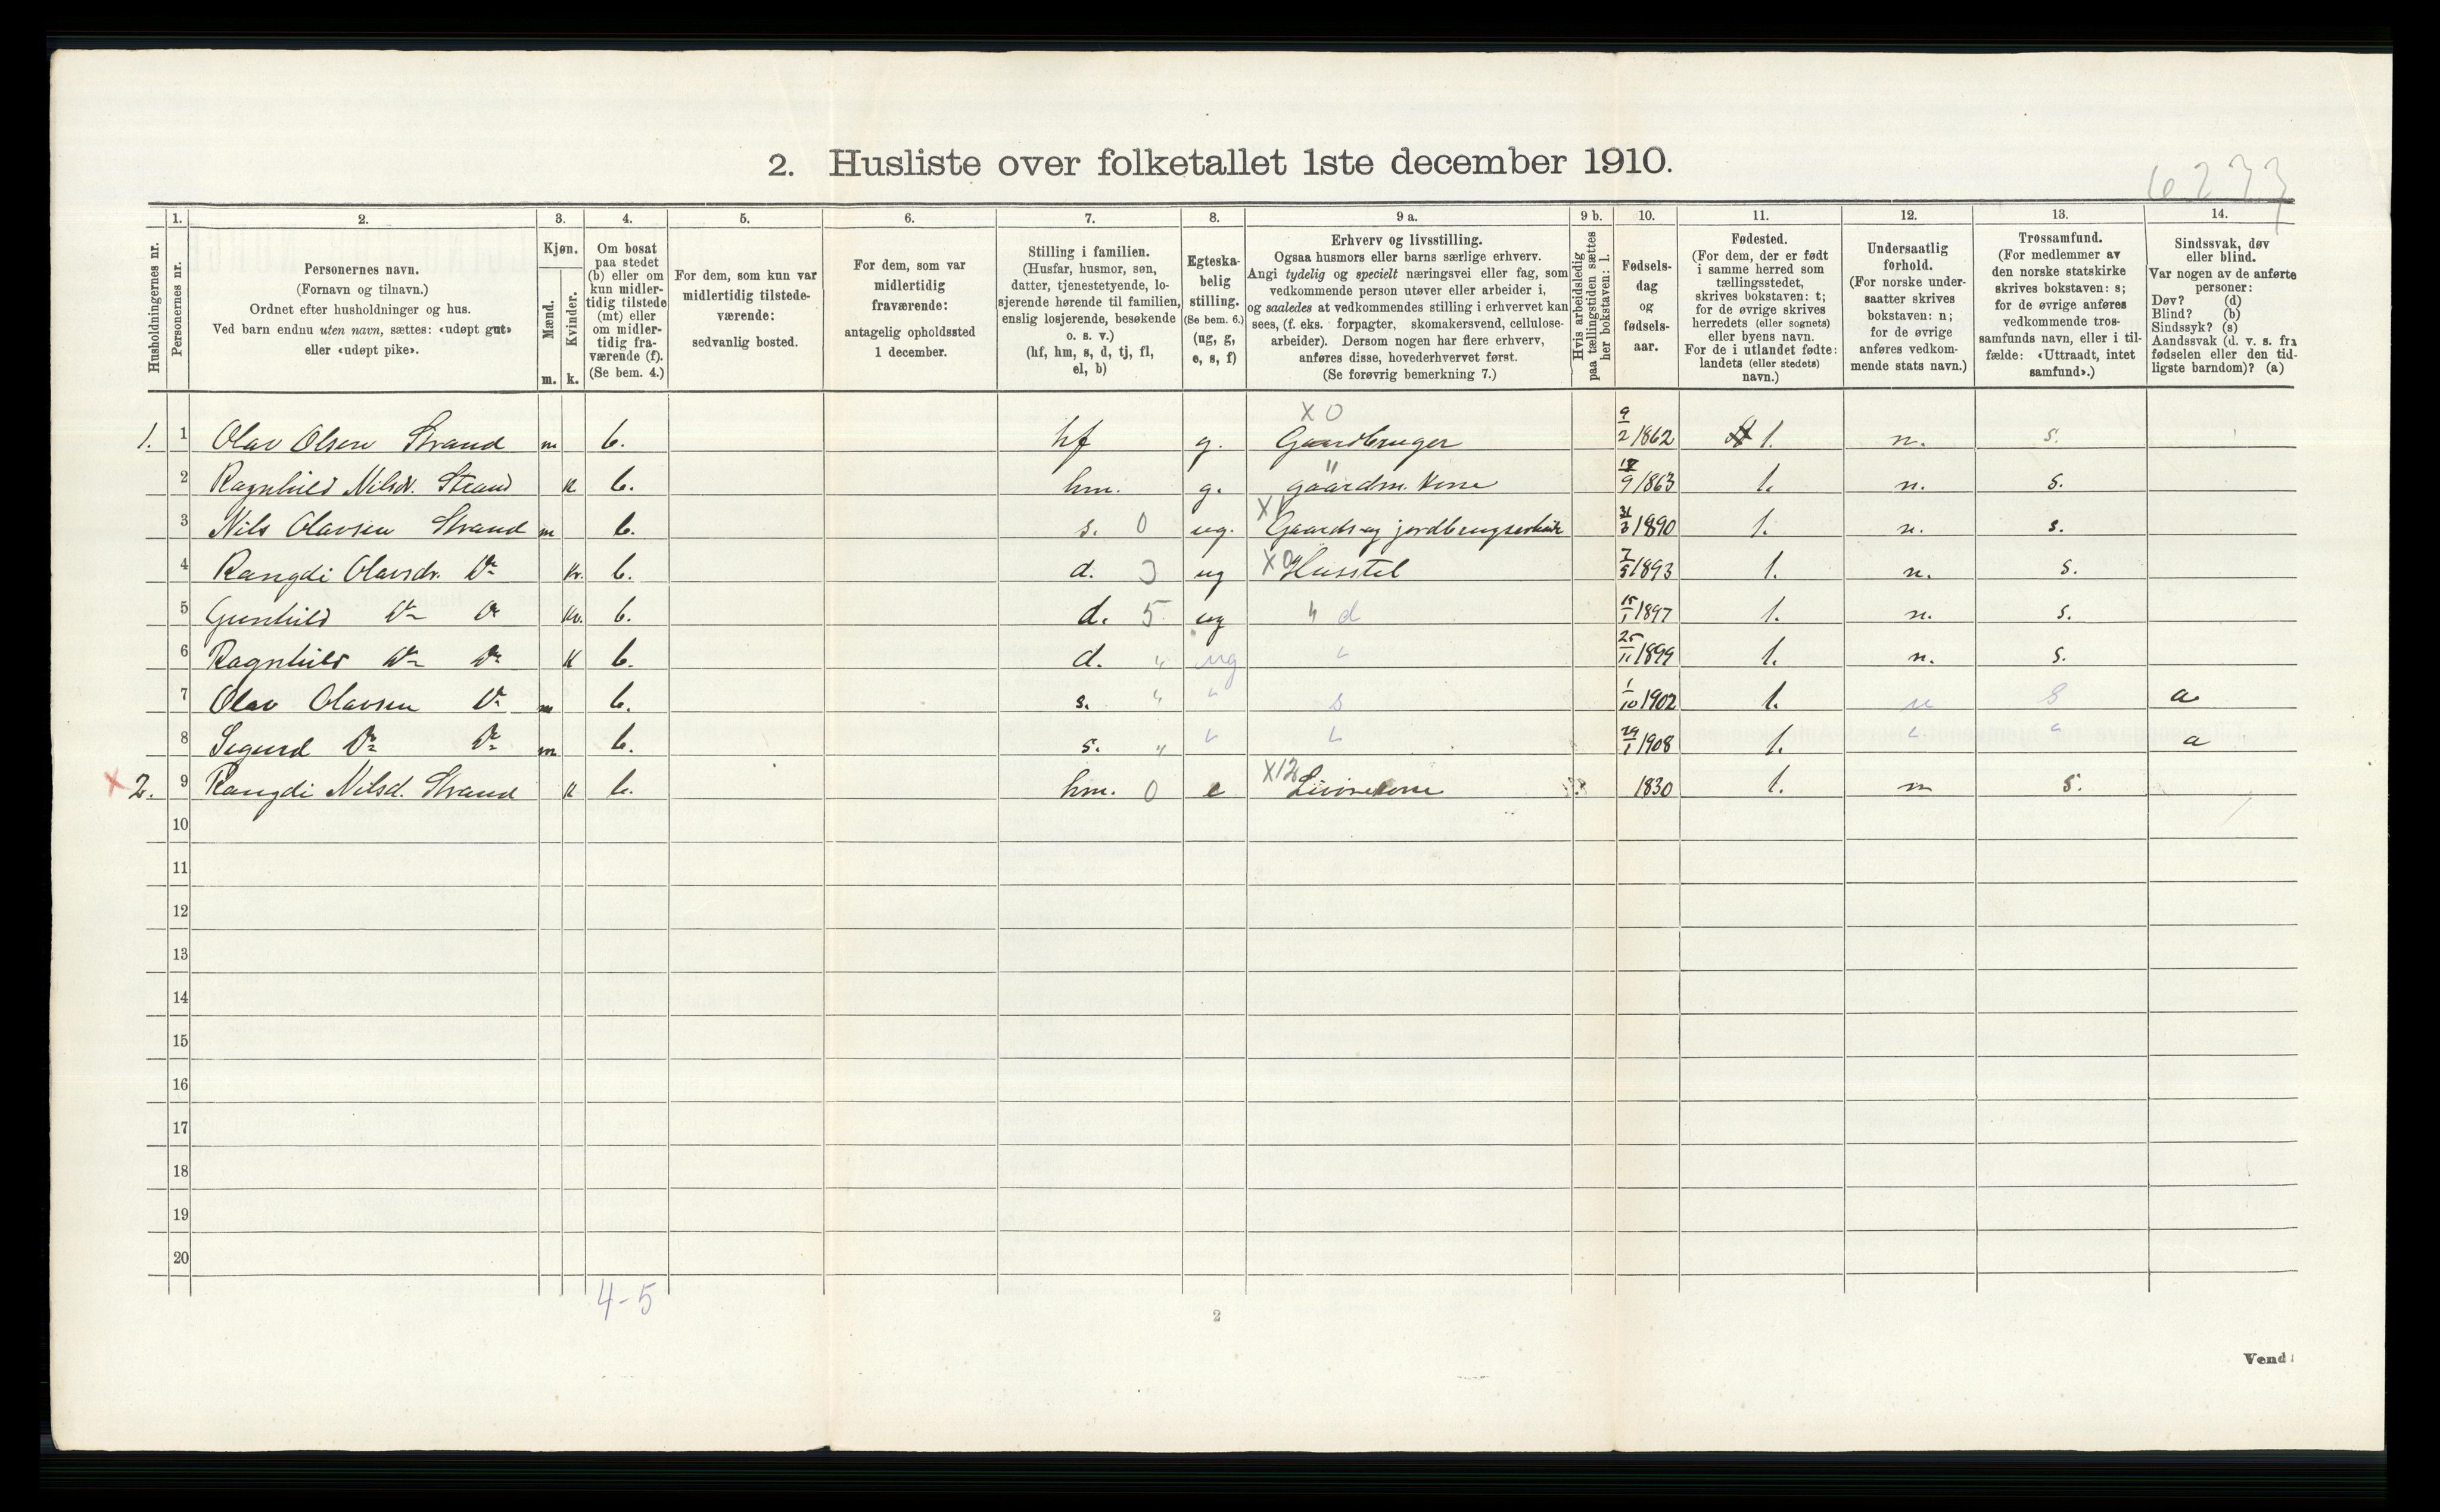 2. Husliste over folketallet 1ste december 1910.
6233
Husholdningernes nr.
1.
Personernes nr.
2.
Personernes navn.
(Fornavn og tilnavn.)
Ordnet efter husholdninger og hus.
Ved barn endnu uten navn, sættes: «udøpt gut»
eller «udøpt pike».
3.
Kjøn.
Mænd.
Kvinder.
m. k.
4.
Om bosat
paa stedet
(b) eller om
kun midler-
tidig tilstede
(mt) eller
om midler-
tidig fra-
værende (f).
(Se bem. 4.)
5.
For dem, som kun var
midlertidig tilstede-
værende:
sedvanlig bosted.
6.
For dem, som var
midlertidig
fraværende:
antagelig opholdssted
1 december.
7.
Stilling i familien.
(Husfar, husmor, søn,
datter, tjenestetyende, lo-
sjerende hørende til familien,
enslig losjerende, besøkende
o. s. v.)
(hf, hm, s, d, tj, fl,
el, b)
8.
Egteska-
belig
stilling.
(Se bem. 6.)
(ug, g,
e, s, f)
9 a.
Erhverv og livsstilling.
Ogsaa husmors eller barns særlige erhverv.
Angi tydelig og specielt næringsvei eller fag, som
vedkommende person utøver eller arbeider i,
og saaledes at vedkommendes stilling i erhvervet kan
sees, (f. eks. forpagter, skomakersvend, cellulose-
arbeider). Dersom nogen har flere erhverv,
anføres disse, hovederhvervet først.
(Se forøvrig bemerkning 7.)
9 b.
Hvis arbeidsledig
paa tællingstiden sættes
her bokstaven: l.
10.
Fødsels-
dag
og
fødsels-
aar.
11.
Fødested.
(For dem, der er født
i samme herred som
tællingsstedet,
skrives bokstaven: t;
for de øvrige skrives
herredets (eller sognets)
eller byens navn.
For de i utlandet fødte:
landets (eller stedets)
navn.)
12.
Undersaatlig
forhold.
(For norske under-
saatter skrives
bokstaven: n;
for de øvrige
anføres vedkom-
mende stats navn.)
13.
Trossamfund.
(For medlemmer av
den norske statskirke
skrives bokstaven: s;
for de øvrige anføres
vedkommende tros-
samfunds navn, eller i til-
fælde: «Uttraadt, intet
samfund».)
14.
Sindssvak, døv
eller blind.
Var nogen av de anførte
personer:
Døv? (d)
Blind? (b)
Sindssyk? (s)
Aandssvak (d. v. s. fra
fødselen eller den tid-
ligste barndom)? (a)
X 0
1. 1 Olav Olsen Strand m b. hf g. Gaardbruger 9/2 1862 t. n. s.
2 Ragnhild Nilsdr. Strand k b. hm. g. " gaardm. kone 1863 t. n. s.
3 Nils Olavsen Strand m b. s. 0 ug. X1 Gaards og jordbrugsarbeide 31/3 1890 t. n. s.
4 Rangdi Olavsdr. Do k. b. d. ug X0 Husstel 7/5 1893 t. n. s.
5 Gunhild Do Do kv. b. d. 5 ug " d 15/1 1897 t. n. s.
6 Ragnhild Do Do k b. d. " ug " 25/11 1899 t. n. s.
7 Olav Olavsen Do m b. s. " " s 1/10 1902 t. n s a
8 Sigurd Do Do m b. s. " " " 29/1 1908 t. " " a
X 2. 9 Rangdi Nilsd. Strand k b. hm. 0 e X12 Livørekone 1830 t. n s.
10
11
12
13
14
15
16
17
18
19
20
4-5
2
Vend!